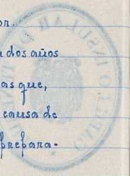 on.
a dos años
as que,
causa de
prepara-